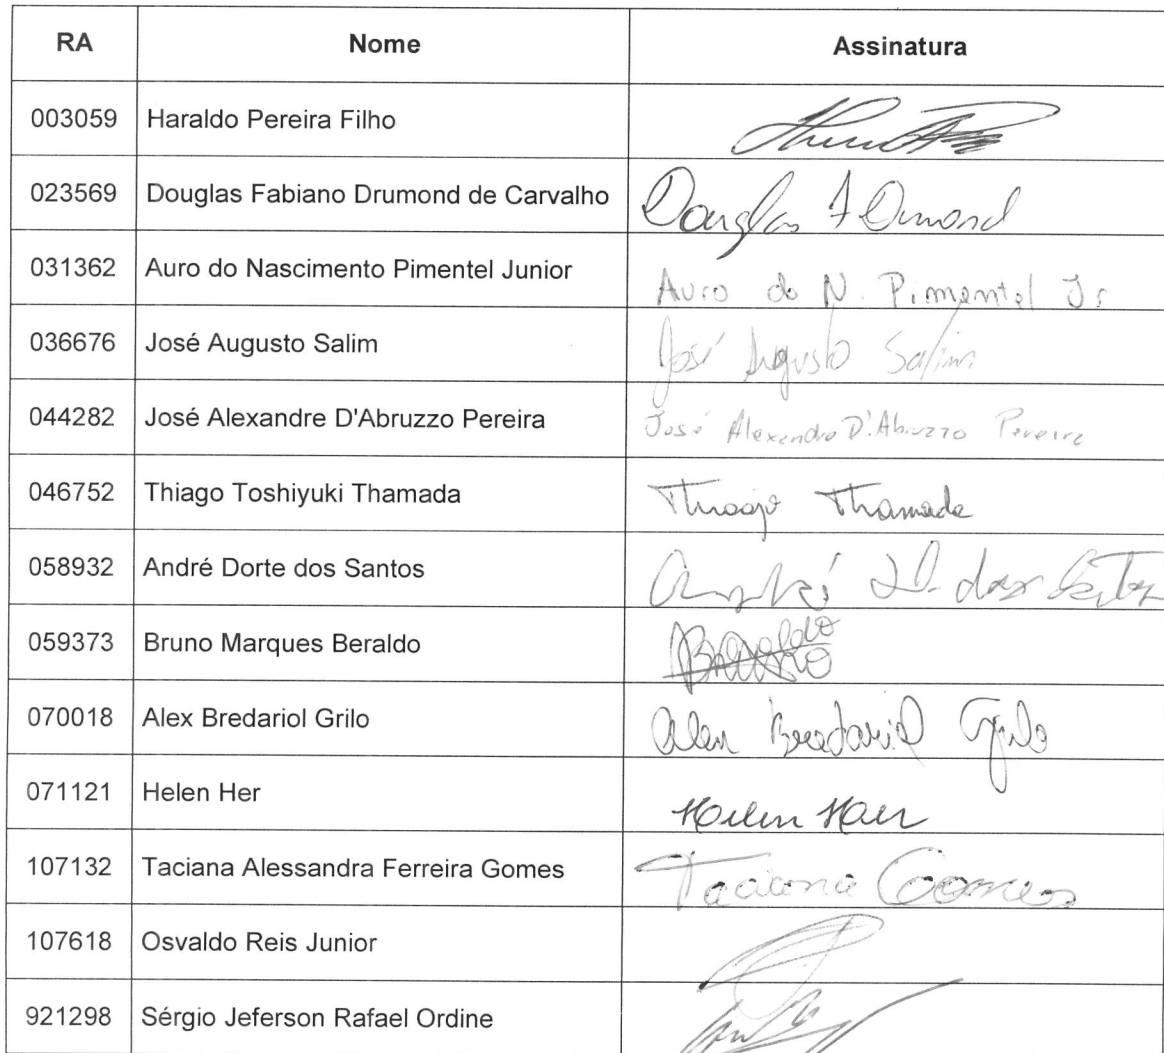 RA Nome Assinatura
003059 Haraldo Pereira Filho
023569 Douglas Fabiano Drumond de Carvalho Douglas F Drumond
031362 Auro do Nascimento Pimentel Junior Auro do N. Pimentel Jr
036676 José Augusto Salim José Augusto Salim
044282 José Alexandre D'Abruzzo Pereira José Alexandre D'Abruzzo Pereira
046752 Thiago Toshiyuki Thamada Thiago Thamada
058932 André Dorte dos Santos André D. dos Santos
059373 Bruno Marques Beraldo
070018 Alex Bredariol Grilo Alex Bredariol Grilo
071121 Helen Her Helen Her
107132 Taciana Alessandra Ferreira Gomes Taciana Gomes
107618 Osvaldo Reis Junior
921298 Sérgio Jeferson Rafael Ordine